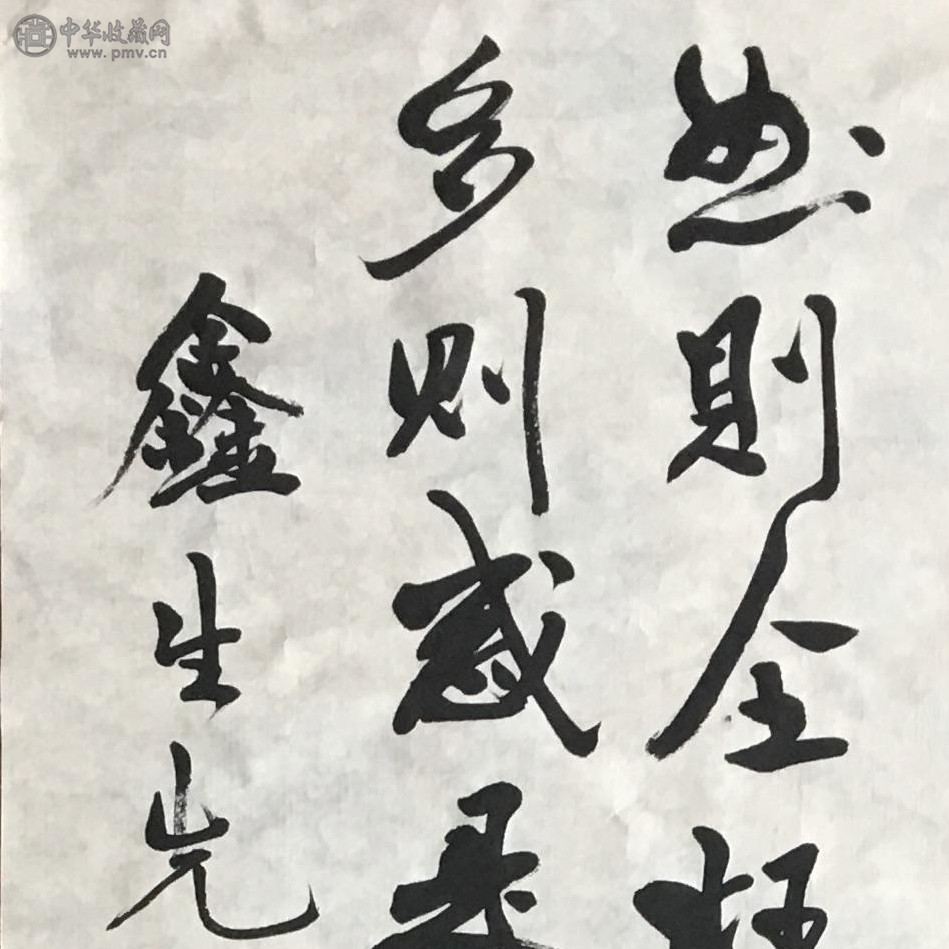 曲則全枉
多则惑是
鑫生先
中华收藏网
www.pmv.cn